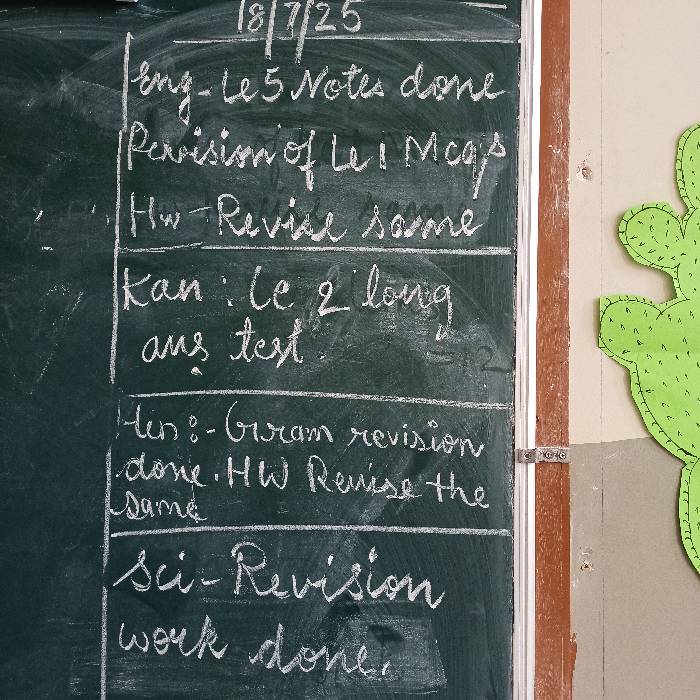 18/7/25
Eng - Le 5 Notes done
Revision of Le 1 Mcq's
Hw - Revise same
Kan : Le 2 long
ans test.
Hin :- Gram revision
done. HW Revise the
same
Sci - Revision
work done.